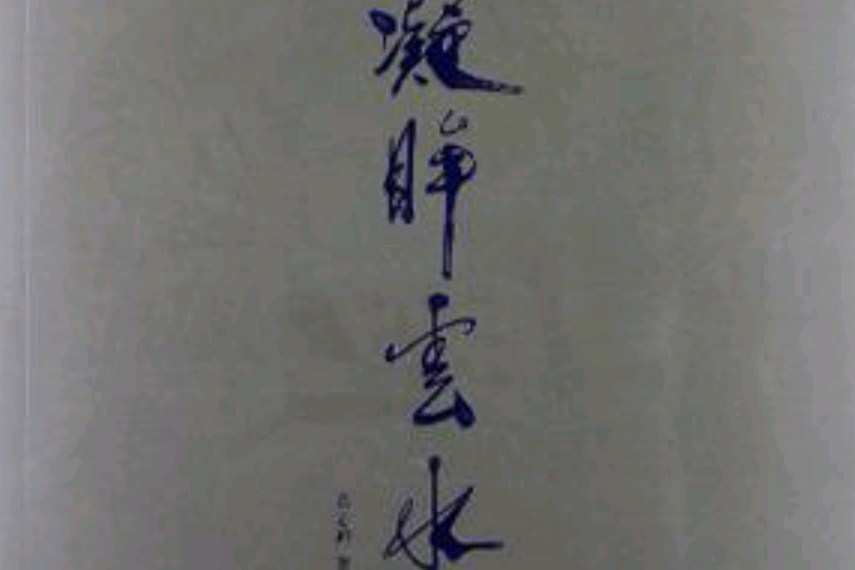 凝眸雲水